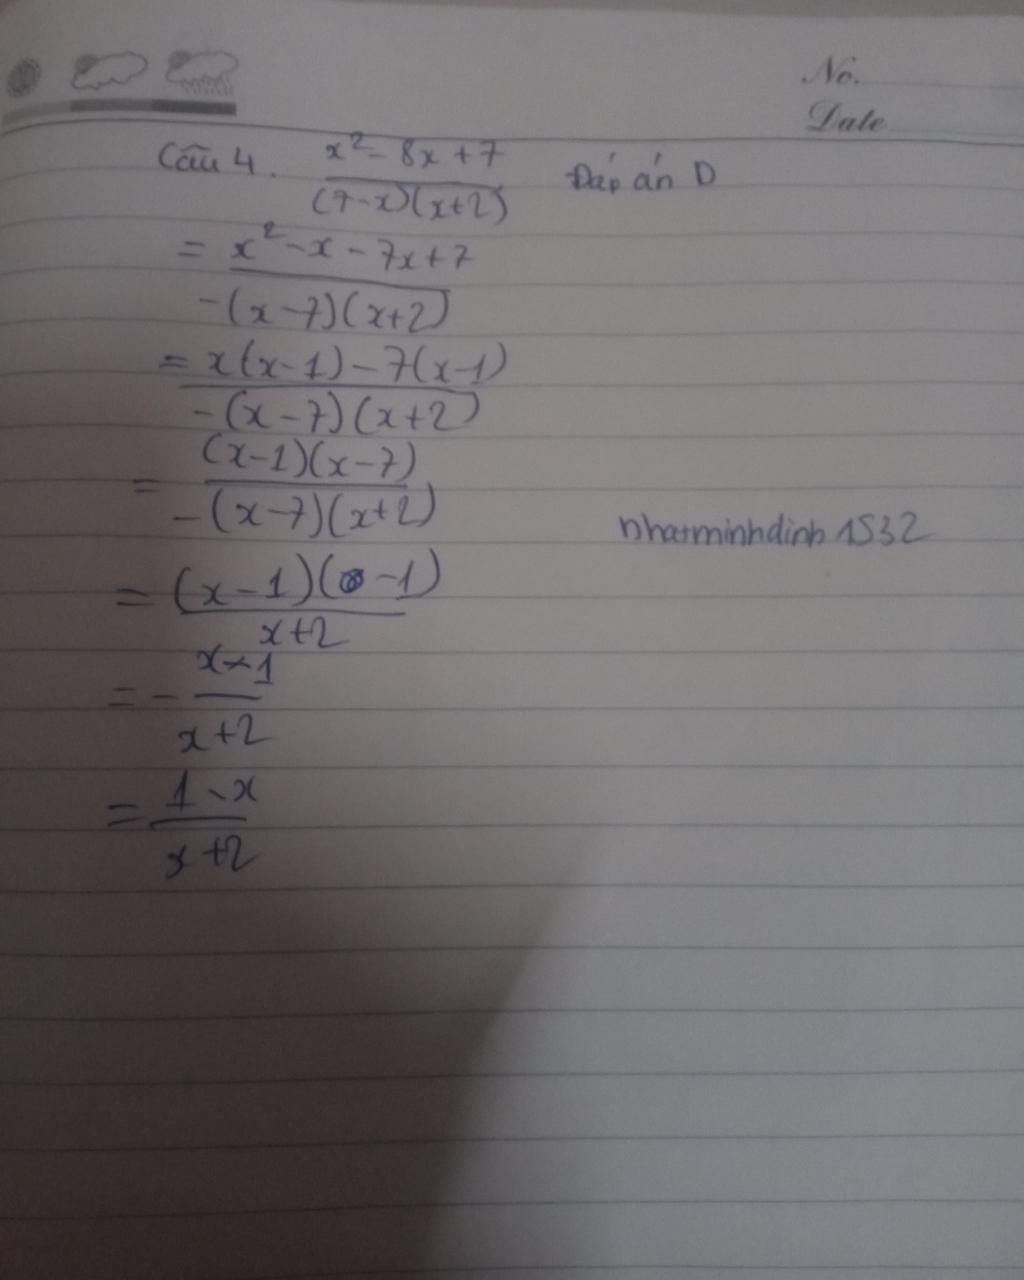 No.
Date
Câu 4. x² - 8x + 7 / (7-x)(x+2) Đáp án D
= x² - x - 7x + 7 / -(x-7)(x+2)
= x(x-1) - 7(x-1) / -(x-7)(x+2)
= (x-1)(x-7) / -(x-7)(x+2)
nhatminhdinh1532
= (x-1)(-1) / x+2
= - x-1 / x+2
= 1-x / x+2